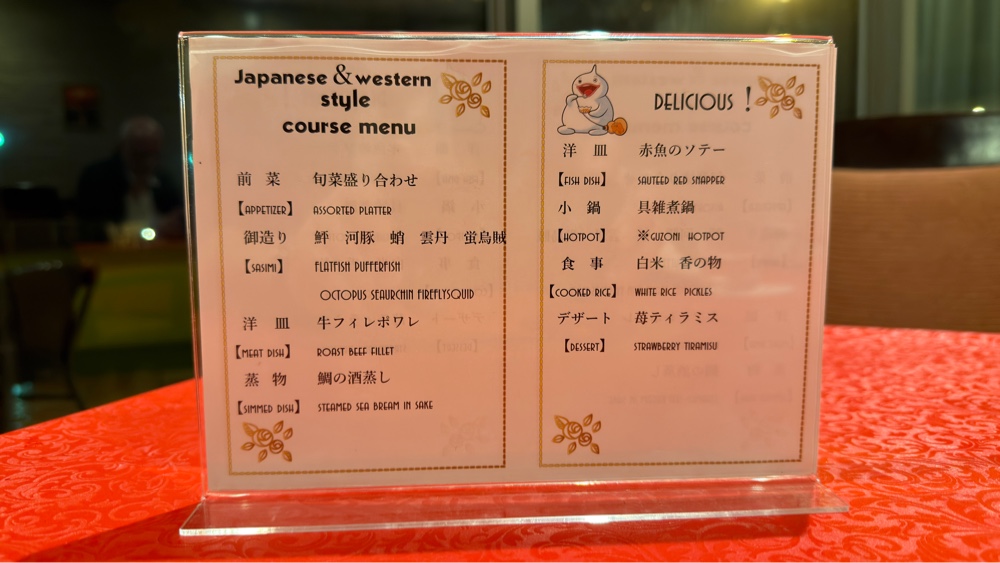 Japanese & western
style
course menu
前 菜 旬菜盛り合わせ
【APPETIZER】 ASSORTED PLATTER
御造り 鮃 河豚 蛸 雲丹 蛍烏賊
【SASIMI】 FLATFISH PUFFERFISH
OCTOPUS SEAURCHIN FIREFLYSQUID
洋 皿 牛フィレポワレ
【MEAT DISH】 ROAST BEEF FILLET
蒸 物 鯛の酒蒸し
【SIMMED DISH】 STEAMED SEA BREAM IN SAKE
DELICIOUS !
洋 皿 赤魚のソテー
【FISH DISH】 SAUTEED RED SNAPPER
小 鍋 具雑煮鍋
【HOTPOT】 ※GUZONI HOTPOT
食 事 白米 香の物
【COOKED RICE】 WHITE RICE PICKLES
デザート 苺ティラミス
【DESSERT】 STRAWBERRY TIRAMISU